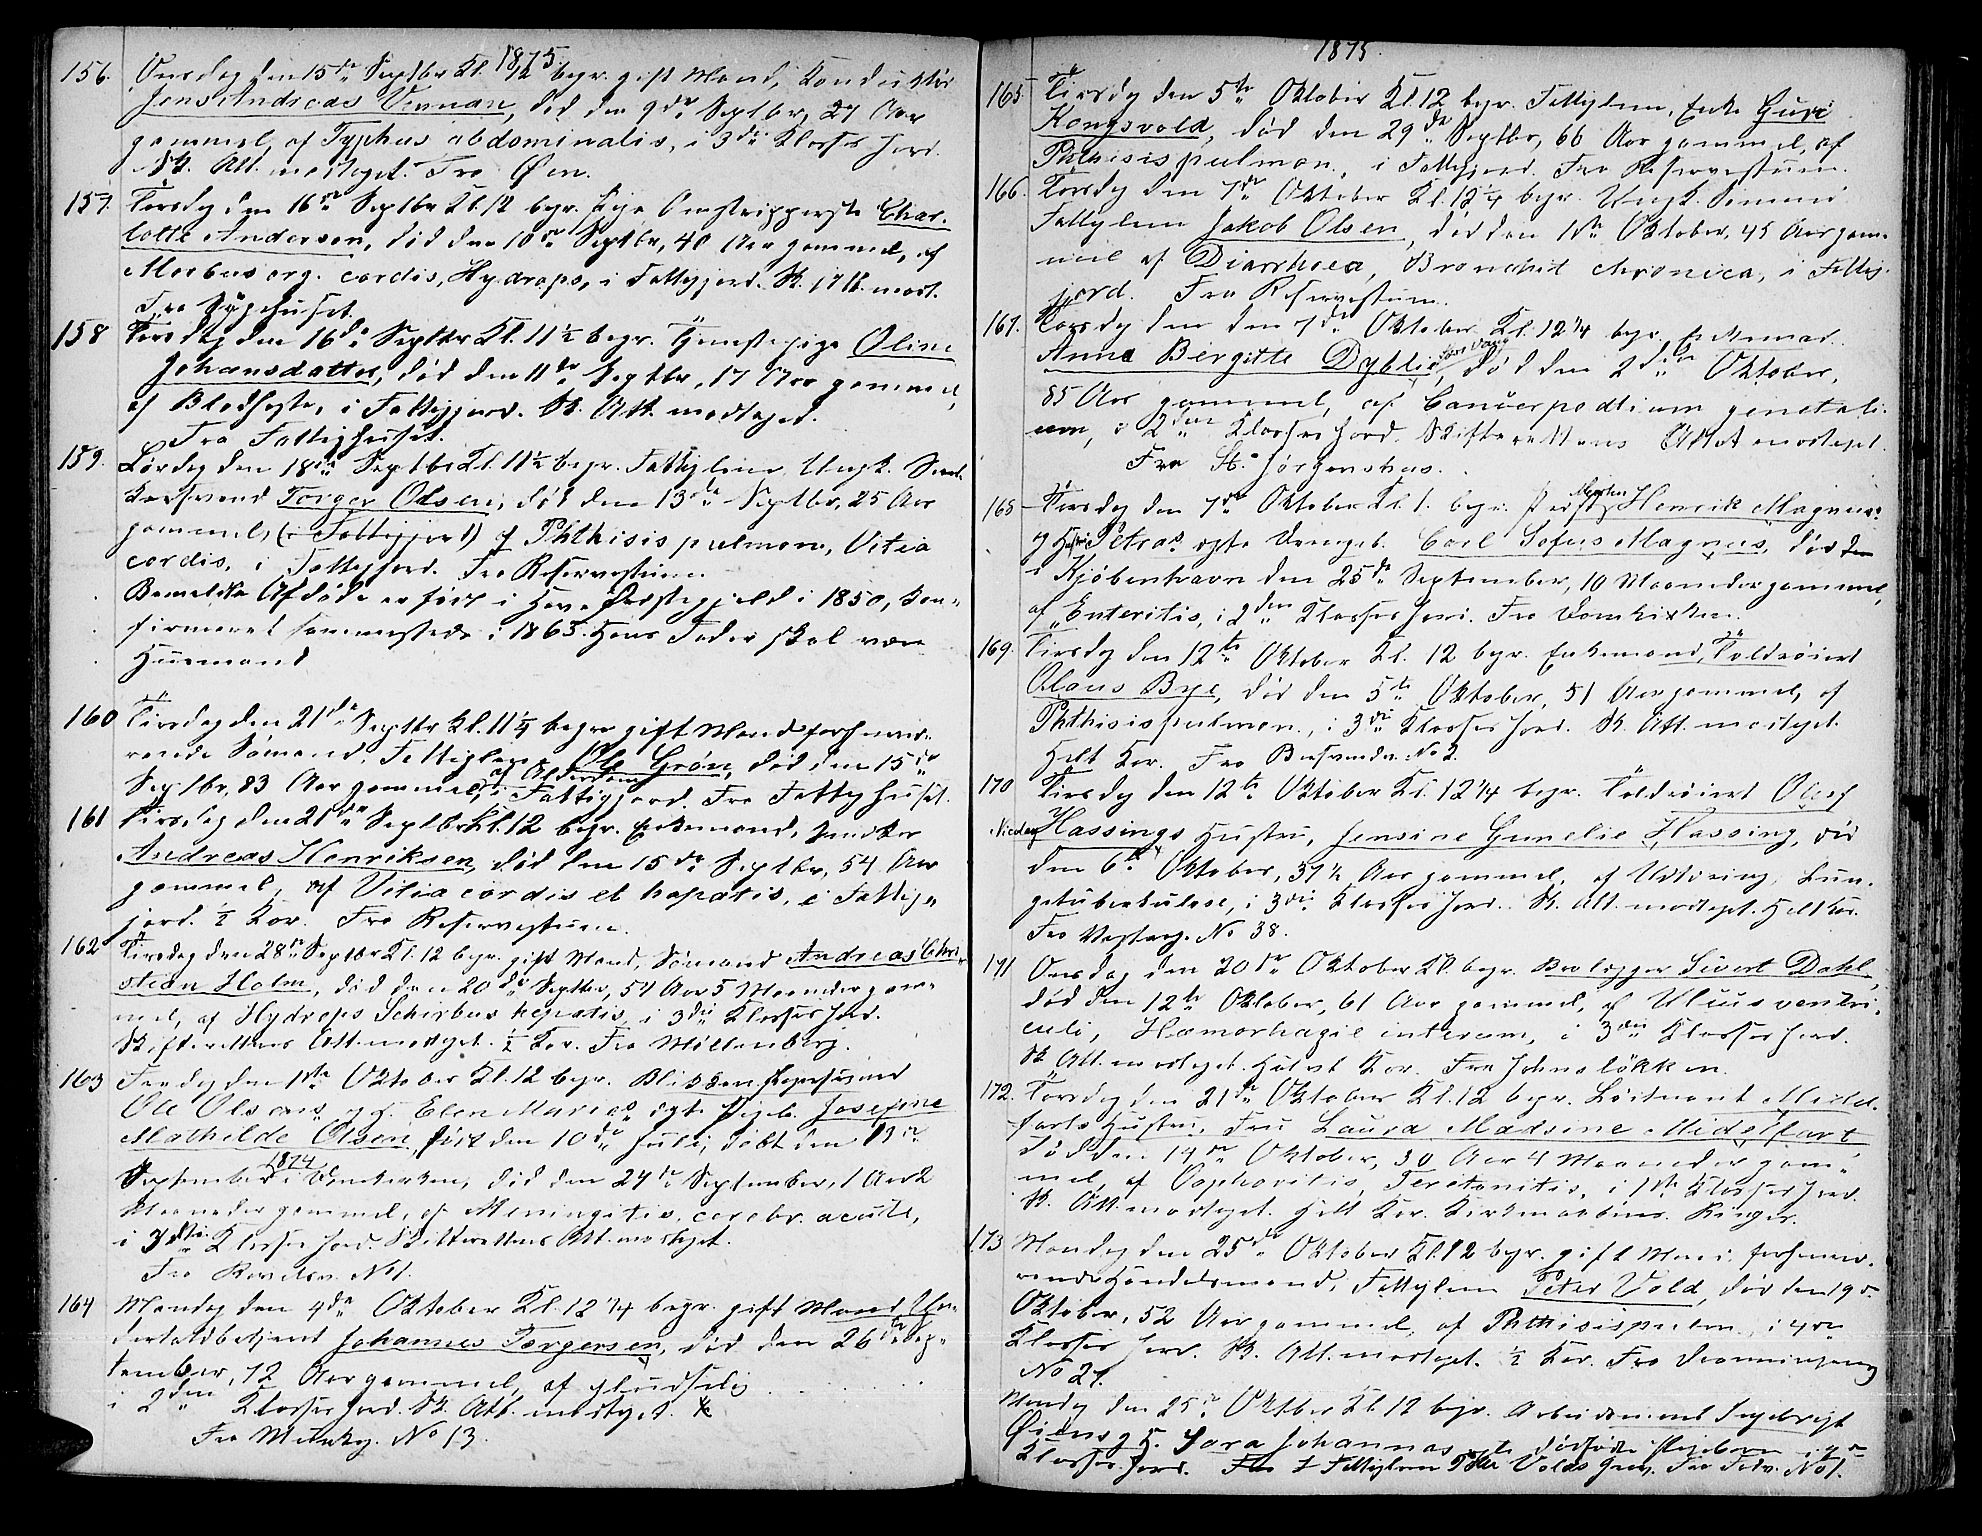 1875.
156. Onsdag den 15de Septbr Kl. 12 begr. gift Mand, Konduktør
Jens Andreas Vennan, død den 9de Septbr, 27 Aar
gammel, af Typhus abdominalis, i 3die Klasses Jord.
Sk. Att. modtaget. Fra Øen.
157. Torsdag den 16de Septbr Kl. 12 begr. Pige Omstripperske Char-
lotte Anderson, død den 10de Septbr, 40 Aar gammel, af
Morbus org. cordis, Hydrops, i Fattigjord. Sk. Att. modt.
Fra Sygehuset.
158 Torsdag den 16de Septbr Kl. 11½ begr. Tjenestepige Oline
Johansdatter, død den 11te Septbr, 17 Aar gammel,
af Blodhoste, i Fattigjord. Sk. Att. modtaget.
Fra Fattighuset.
159. Lørdag den 18de Septbr Kl. 11½ begr. Fattiglem Ungk.
Torger Olsen, død den 13de Septbr, 25 Aar
gammel, (i Fattigjord) af Phthisis pulmon, Vitia
cordis, i Fattigjord. Fra Reservestuen.
Bemeldte Afdøde er født i Præstegjeld i 1850, kon-
firmeret sammesteds i 1865. Hans Fader skal være
Husmand
160 Tirsdag den 21de Septbr Kl. 11½ begr. gift Mand forhenvæ-
rende Sømand, Fattiglem Ole Grøn, død den 15de
Septbr, 83 Aar gammel, af Alderdom, i Fattigjord. Fra Fattighuset.
161 Tirsdag den 21de Septbr Kl. 12 begr. Enkemand, Snedker
Andreas Henriksen, død den 15de Septbr, 54 Aar
gammel, af Vitia cordis et hepatis, i Fattig-
jord. ½ Kor. Fra Reservestuen.
162 Tirsdag den 28de Septbr Kl. 12 begr. gift Mand, Sømand Andreas Chri-
stian Holm, død den 20de Septbr, 54 Aar 5 Maaneder gam-
mel, af Hydrops Schirbus hepatis, i 3die Klasses Jord.
Skifterettens Att. modtaget. ½ Kor. Fra Møllenberg.
163 Fredag den 1ste Oktober Kl. 12 begr.
Ole Olsens og H. Elen Marias ægte Pigeb. Josefine
Mathilde Olsen, født den 10de Juli, døbt den
September 1874 i Domkirken, død den 24de September, 1 Aar 2
Maaneder gammel, af Meningitis, cerebr. acuta,
i 3die Klasses Jord. Skifterettens Att. modtaget.
Fra No 1.
164 Mandag den 4de Oktober Kl. 12¼ begr. gift Mand, Un-
dertoldbetjent Johannes Torgersen, død den 26de Sep-
tember, 72 Aar gammel, af pludselig
i 2den Klasses Jord. Sk. Att. modtaget.
Fra Munkg. No 13.
1875.
165 Tirsdag den 5te Oktober Kl. 12 begr. Fattiglem, Enke Guri
Kongsvold, død den 29de Septbr, 66 Aar gammel, af
Phthisis pulmon., i Fattigjord. Fra Reservestuen.
166. Torsdag den 7de Oktober Kl. 12¼ begr. Ungk. Sømand
Fattiglem Jakob Olsen, død den 1ste Oktober, 45 Aar gam-
mel af Diarrhoea, Bronchit chronica, i Fattig-
jord. Fra Reservestuen.
167. Torsdag den den 7de Oktober Kl. 12¼ begr. Enkemad.
Anna Birgitte Dyblie, død den 2den Oktober,
85 Aar gammel, af Cancer genetali-
um, i 2den Klasses Jord. Skifterettens Att modtaget.
Fra St. Jørgenshus.
168 Torsdag den 7de Oktober Kl. 1. begr. Henrik Magnus
og Petras ægte Drengeb. Carl Sofus Magnus, død
i Kjøbenhavn den 25de September, 10 Maaneder gammel,
af Enteritis, i 2den Klasses Jord. Fra Domkirken.
169. Tirsdag den 12te Oktober Kl. 12 begr. Enkemand, Toldrøiert
Olaus Bye, død den 5te Oktober, 51 Aar gammel, af
Phthisis pulmon., i 3die Klasses Jord. Sk. Att. modtaget.
Helt Kor. Fra No 2.
170 Tirsdag den 12te Oktober Kl. 12¼ begr. Toldrøiert Oluf
Nicolay Hassings Hustru, Jensine Gunelie Hassing, død
den 6te Oktober, 37½ Aar gammel, af Udtæring, Lun-
getuberkulose, i 3die Klasses Jord. Sk. Att. modtaget. Helt Kor.
Fra No 38.
171 Onsdag den 20de Oktober Kl. begr. Brolægger Sivert Dahl,
død den 12te Oktober, 61 Aar gammel, af Ulcus ventri-
culi, Hæmorhagie internum, i 3die Klasses Jord.
Sk. Att. modtaget. Halvt Kor. Fra Johnsløkken.
172. Torsdag den 21de Oktober Kl. 12 begr. Løitnant Midel-
farts Hustru, Fru Laura Madsine Midelfart,
død den 14de Oktober, 30 Aar 4 Maaneder gam-
mel, af Oophoritis, Peretonitis, i 1ste Klasses Jord.
Sk. Att. modtaget. Helt Kor. Ringer.
173 Mandag den 25de Oktober Kl. 12 begr. gift Mand, forhenvæ-
rende Handelsmand, Fattiglem Peter Vold, død den 19de
Oktober, 52 Aar gammel, af Phthisis pulm., i 4de
Klasses Jord. Sk. Att. modtaget. ½ Kor. Fra Dronningensg
No 27.
Mandag den 25de Oktbr Kl. 12 begr. Arbeidsmand Ingebrigt
Øiens og H. Sara Johannas ægte dødfødte Pigebarn i 4de
Klasses Jord. i Fattiglem Peter Volds Grav. Fra No 1.